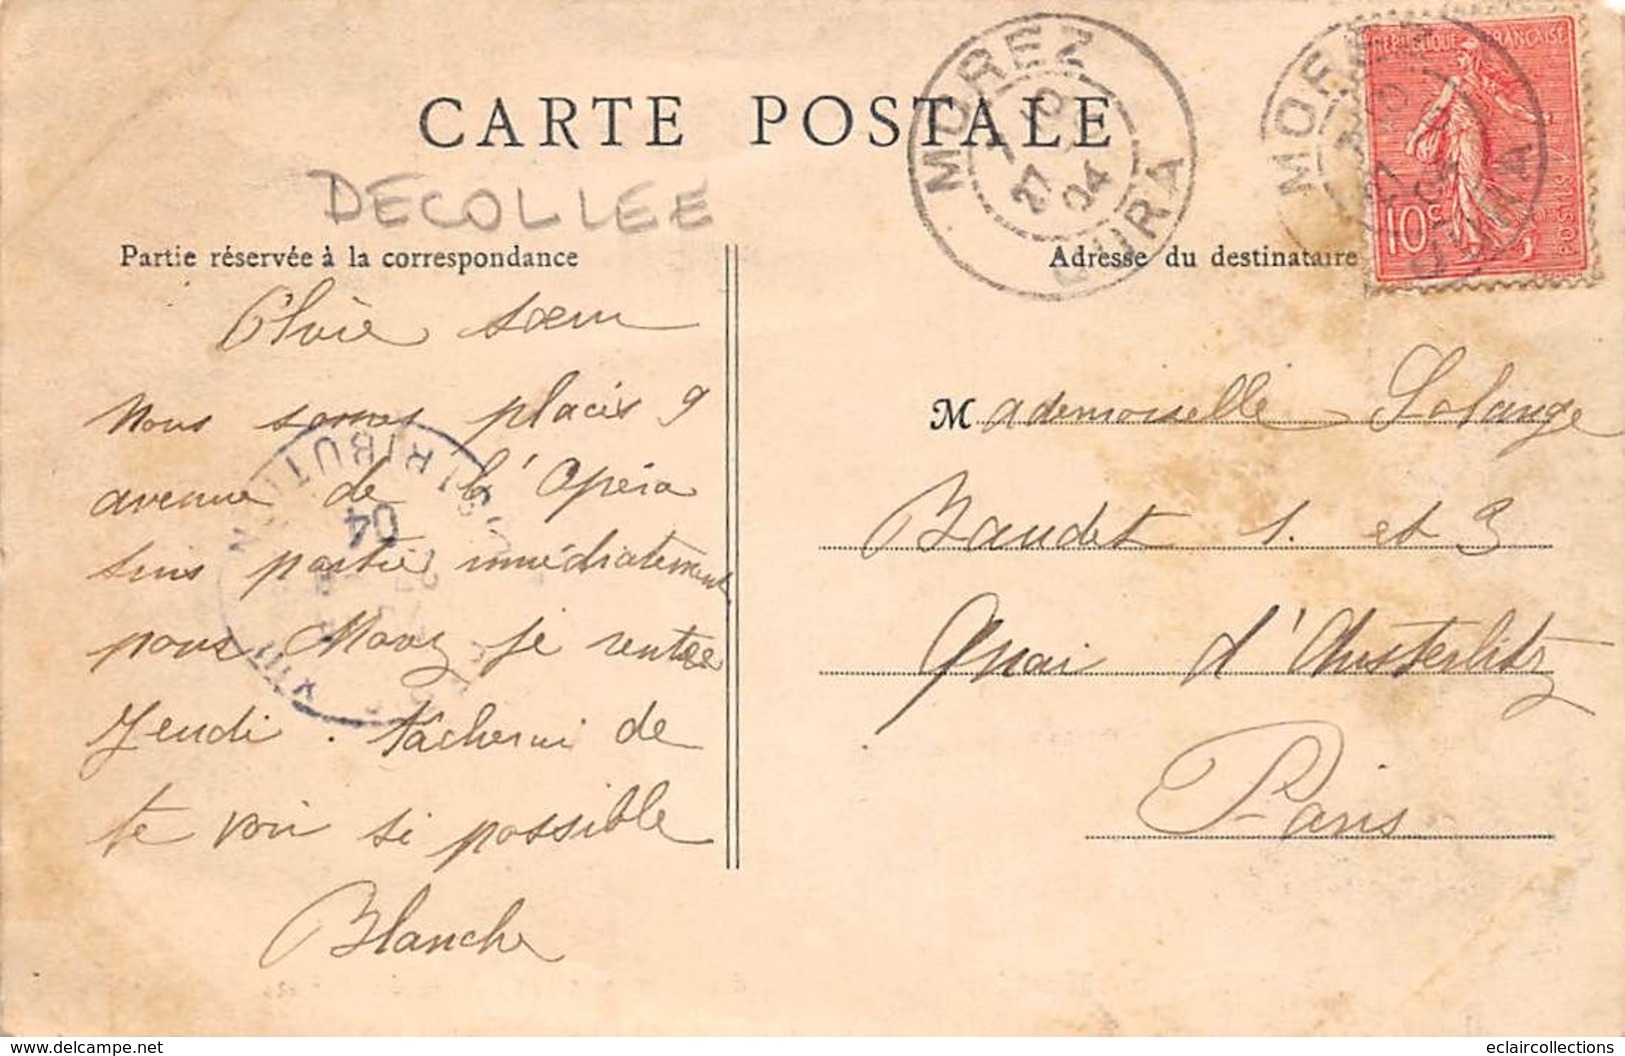 CARTE POSTALE
DECOLLEE
MOREZ
27
04
JURA
MOREZ
JURA
REPUBLIQUE FRANÇAISE
10c
POSTES
Partie réservée à la correspondance
Adresse du destinataire
Chère sœur
Nous somes placés 9
avenue de l'Opéra
suis partie immédiatement
pour Morez je rentre
Jeudi. tâcherai de
te voir si possible
Blanche
DISTRIBUTION
04
Mademoiselle Solange
Baudet 1. et 3
Quai d'Austerlitz
Paris
www.delcampe.net
eclaircollections